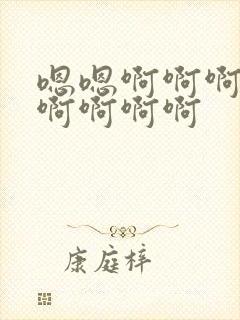 嗯嗯啊啊啊
啊啊啊啊
康庭梓